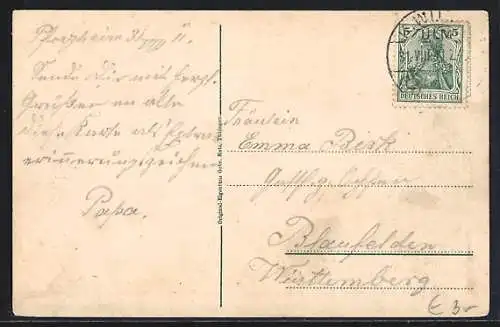 Pforzheim 31/VIII 11.
Sende Dir mit herzl.
Grüßen an alle
diese Karte als
erinnerungszeichen
Papa.
Original-Eigentum Gebr.
5 5
ULM
DEUTSCHES REICH
Fräulein
Emma Birk
Blaufelden
Württemberg
€ 3,-